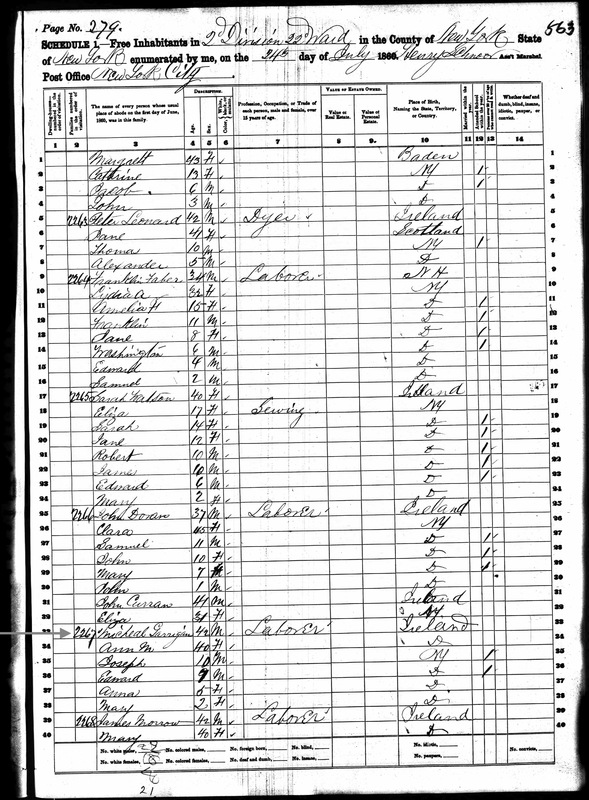 Page No. 279.
563
SCHEDULE 1.—Free Inhabitants in 2d Division 22d Ward in the County of New York State
of New York enumerated by me, on the 24th day of July 1860. Ass't Marshal.
Post Office New York City
DESCRIPTION. VALUE OF ESTATE OWNED.
The name of every person whose usual place of abode on the first day of June, 1860, was in this family. Age. Sex. Color Profession, Occupation, or Trade of each person, male and female, over 15 years of age. Value of Real Estate. Value of Personal Estate. Place of Birth, Naming the State, Territory, or Country. Married within the year. Whether deaf and dumb, blind, insane, idiotic, pauper, or convict.
1 2 3 4 5 6 7 8. 9. 10 11 12 13 14
1 Margrett 43 F Baden 1
2 Cathrine 13 F NY 1 2
3 Jacob 6 M D 1 3
4 John 3 M D 4
5 2263 Peter Leonard 42 M Dyer Ireland 5
6 Jane 41 F Scotland 6
7 Thomas 10 M NY 1 7
8 Alexander 5 M D 8
9 2264 Franklin Faber 34 M Laborer NH 9
10 Lydia A 32 F NY 10
11 Amelia H 15 F D 1 11
12 Franklin 11 M D 1 12
13 Jane 8 F D 1 13
14 Washington 6 M D 1 14
15 Edward 4 M D 15
16 Samuel 2 M D 16
17 2265 Sarah Watson 40 F Ireland 17
18 Eliza 17 F Sewing NY 18
19 Sarah 14 F D 1 19
20 Jane 12 F D 1 20
21 Robert 10 M D 1 21
22 James 10 M D 1 22
23 Edward 6 M D 1 23
24 Mary 2 F D 24
25 2266 John Doran 37 M Laborer Ireland 25
26 Clara 45 F NY 26
27 Samuel 11 M D 1 27
28 John 10 F D 1 28
29 Mary 7 D 1 29
30 John 1 M D 30
31 John Curran 44 M Ireland 31
32 Eliza F NY 32
33 2267 Micheal Garrigan 42 M Laborer Ireland 33
34 Ann M 40 F D 34
35 Joseph 10 M NY 1 35
36 Edward 9 M D 1 36
37 Anna 5 F D 37
38 Mary 2 F D 38
39 2268 James Morrow 42 M Laborer Ireland 39
40 Mary 40 F D 40
No. white males, No. colored males, No. foreign born, No. blind, No. idiotic, No. convicts,
No. white females, No. colored females, No. deaf and dumb, No. insane, No. paupers,
21